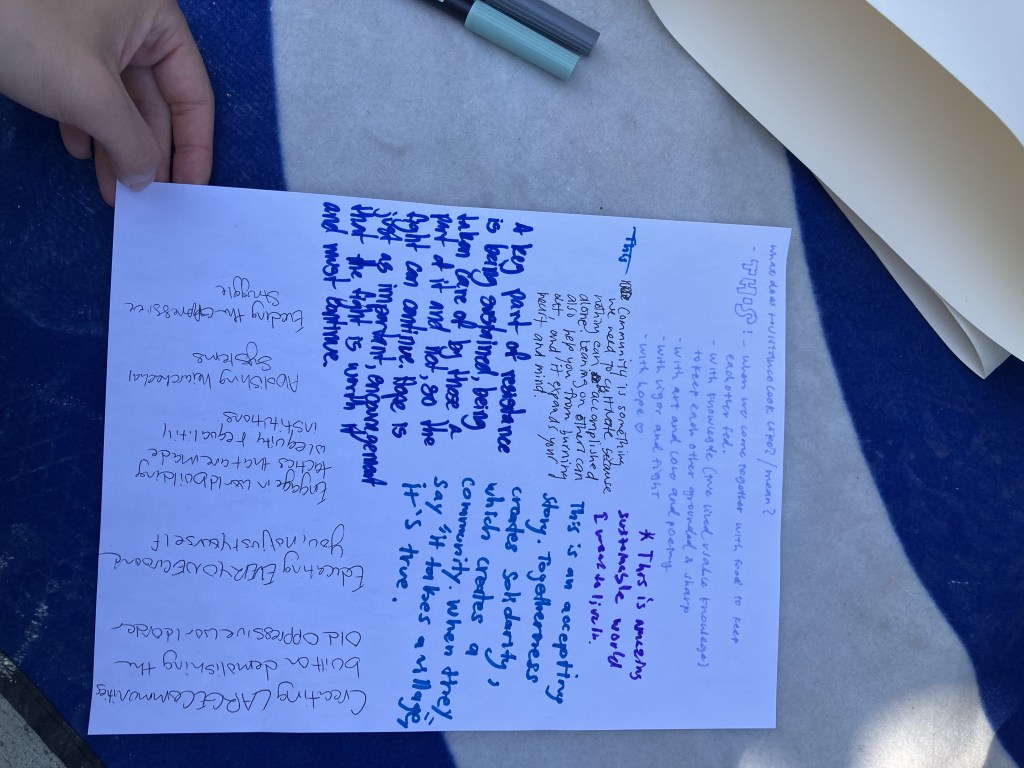 what does resistance look like? / mean?
- THIS! - when we come together with food to keep
each other fed.
- with knowledge (and kind usable knowledge)
to keep each other grounded & sharp
- with art and love and poetry
- with vigor and fight
- with hope ♡
* This is amazing
sustainable world
I want to live in.
This
Community is something
we need to cultivate because
nothing can be accomplished
alone. Leaning on others can
also help you from burning
out, and it expands your
heart and mind.
This is an accepting
story. Togetherness
creates solidarity,
which creates a
community. When they
say "it takes a village,"
it's true.
A key part of resistance
is being sustained, being
taken care of by those a
part of it and not, so the
fight can continue. Hope is
just as important, encouragement
that the fight is worth it
and must continue.
Creating LARGE Communities
built on demolishing the
Old Oppressive world order
Educating EVERYONE around
you, not just yourself
Engage in world building
tactics that are made
w equity & equality
institutions
Abolishing hierarchical
systems
Ending the oppressive
struggle